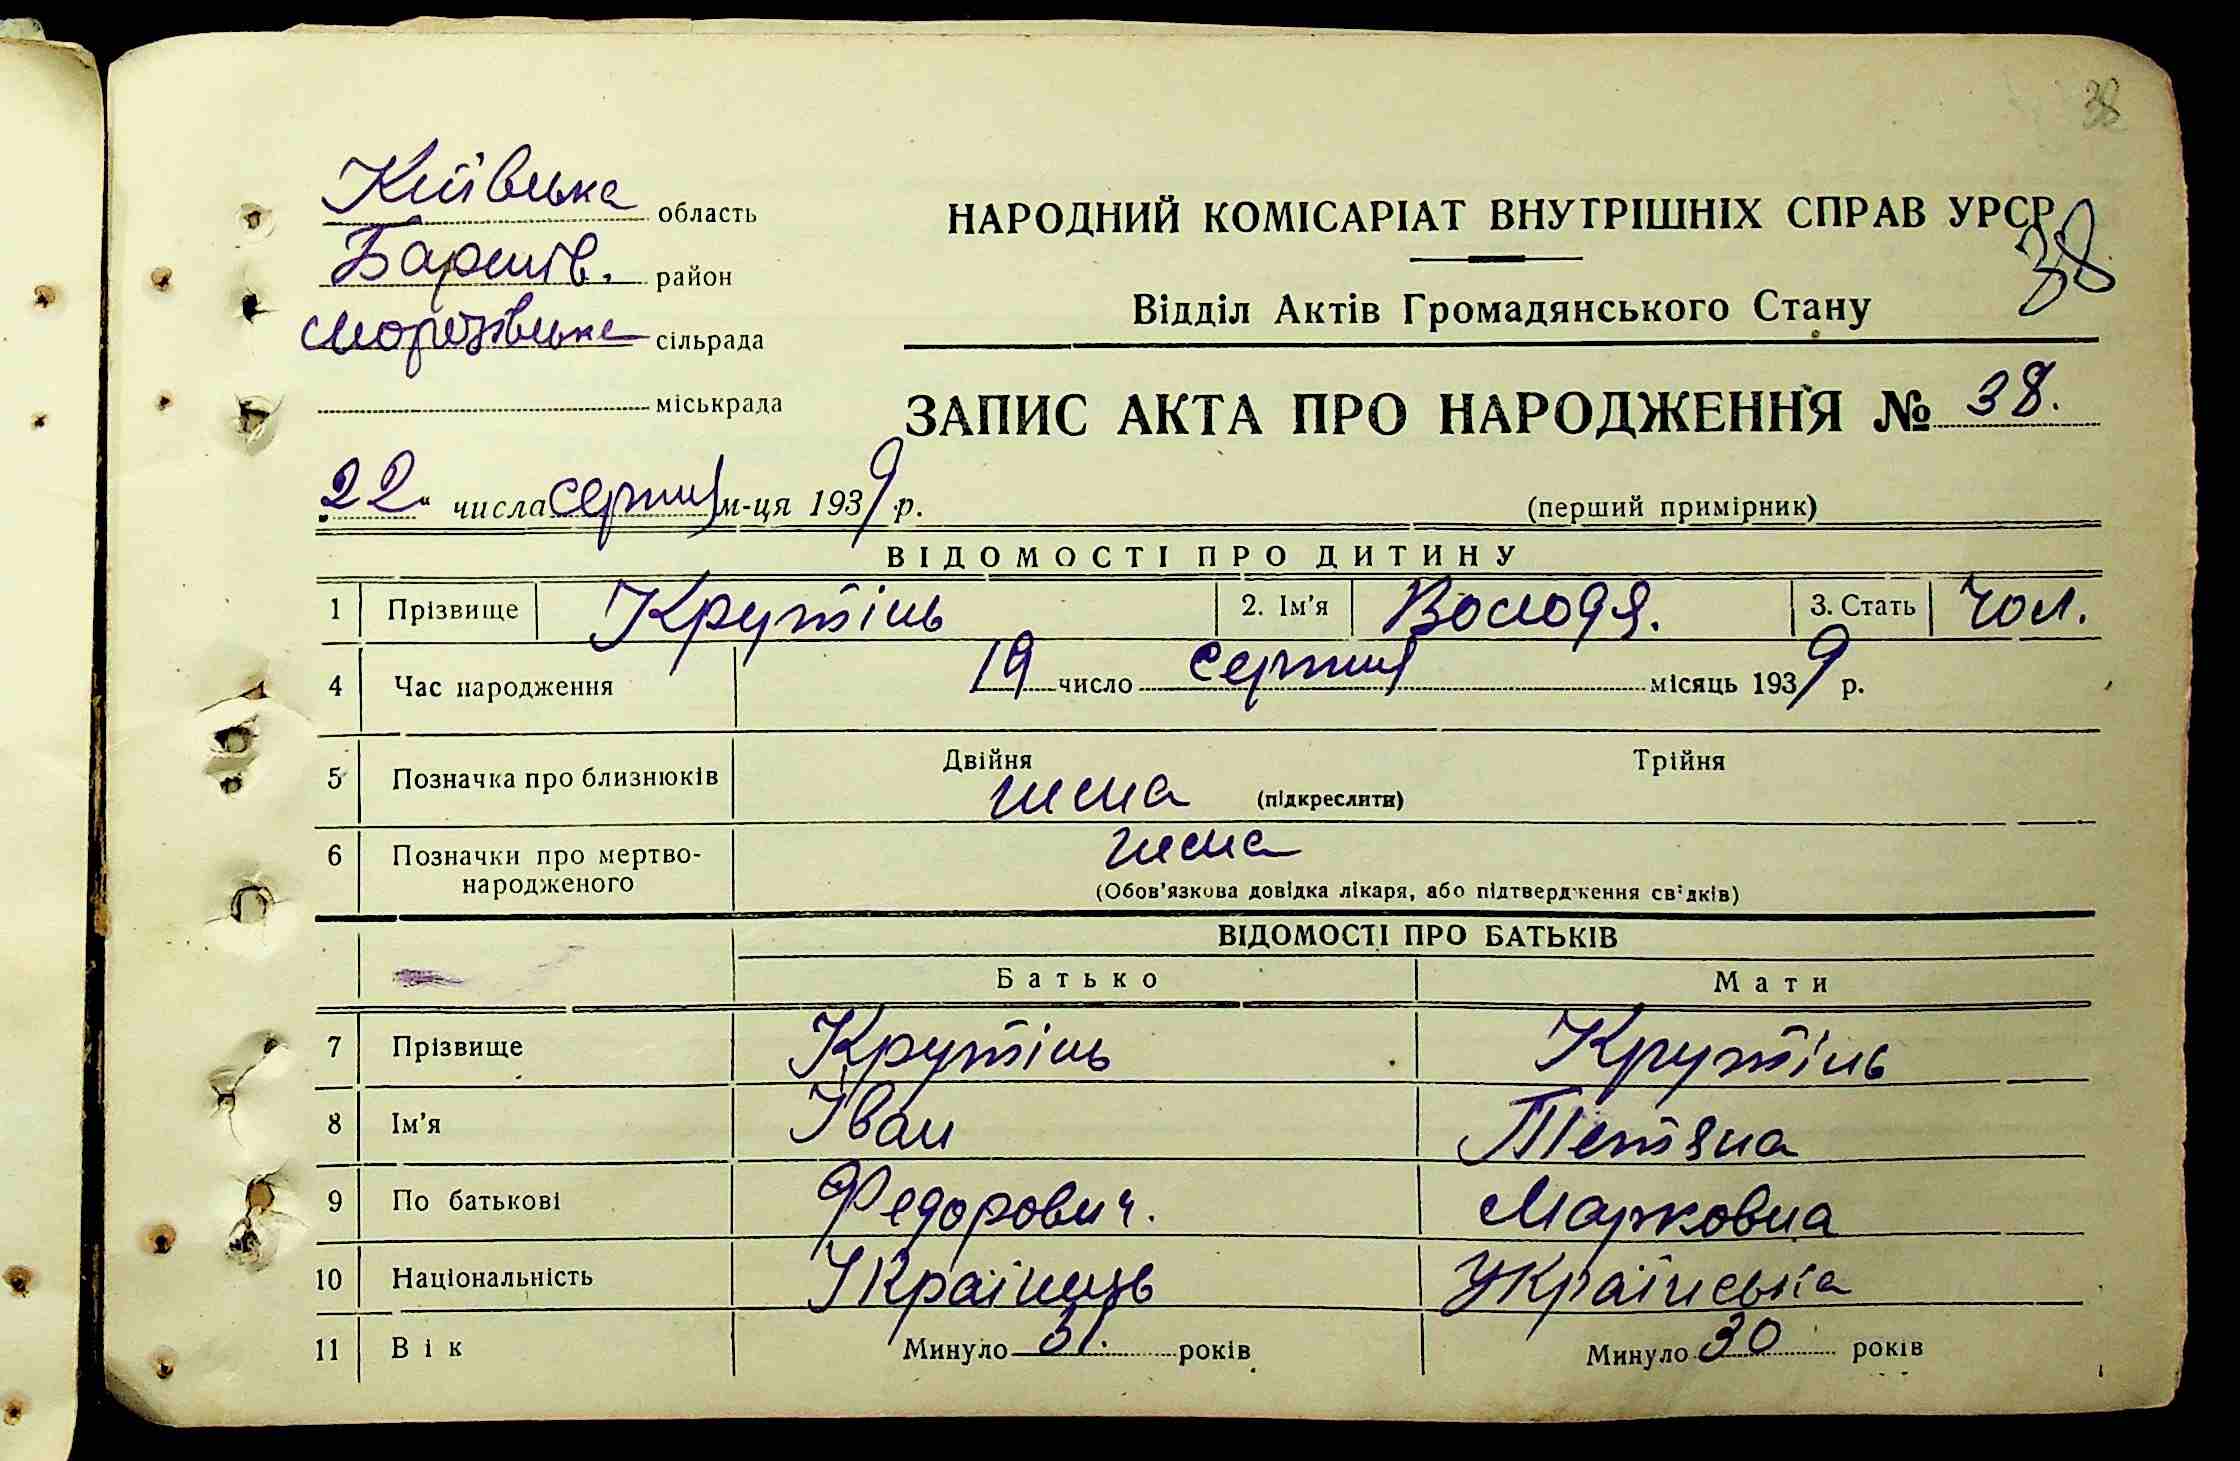 38
Київська область
Баришів. район
Морозівська сільрада
міськрада
НАРОДНИЙ КОМІСАРІАТ ВНУТРІШНІХ СПРАВ УРСР
38
Відділ Актів Громадянського Стану
ЗАПИС АКТА ПРО НАРОДЖЕННЯ № 38.
„22“ числа серпня м-ця 1939 р.
(перший примірник)
ВІДОМОСТІ ПРО ДИТИНУ
1 Прізвище Крутінь 2. Ім'я Володя. 3. Стать Чол.
4 Час народження 19 число серпня місяць 1939 р.
5 Позначка про близнюків Двійня Трійня
нема (підкреслити)
6 Позначки про мертво-народженого нема
(Обов'язкова довідка лікаря, або підтвердження свідків)
ВІДОМОСТІ ПРО БАТЬКІВ
Батько Мати
7 Прізвище Крутінь Крутінь
8 Ім'я Іван Тетяна
9 По батькові Федорович. Марковна
10 Національність Українець Українська
11 Вік Минуло 31. років Минуло 30 років